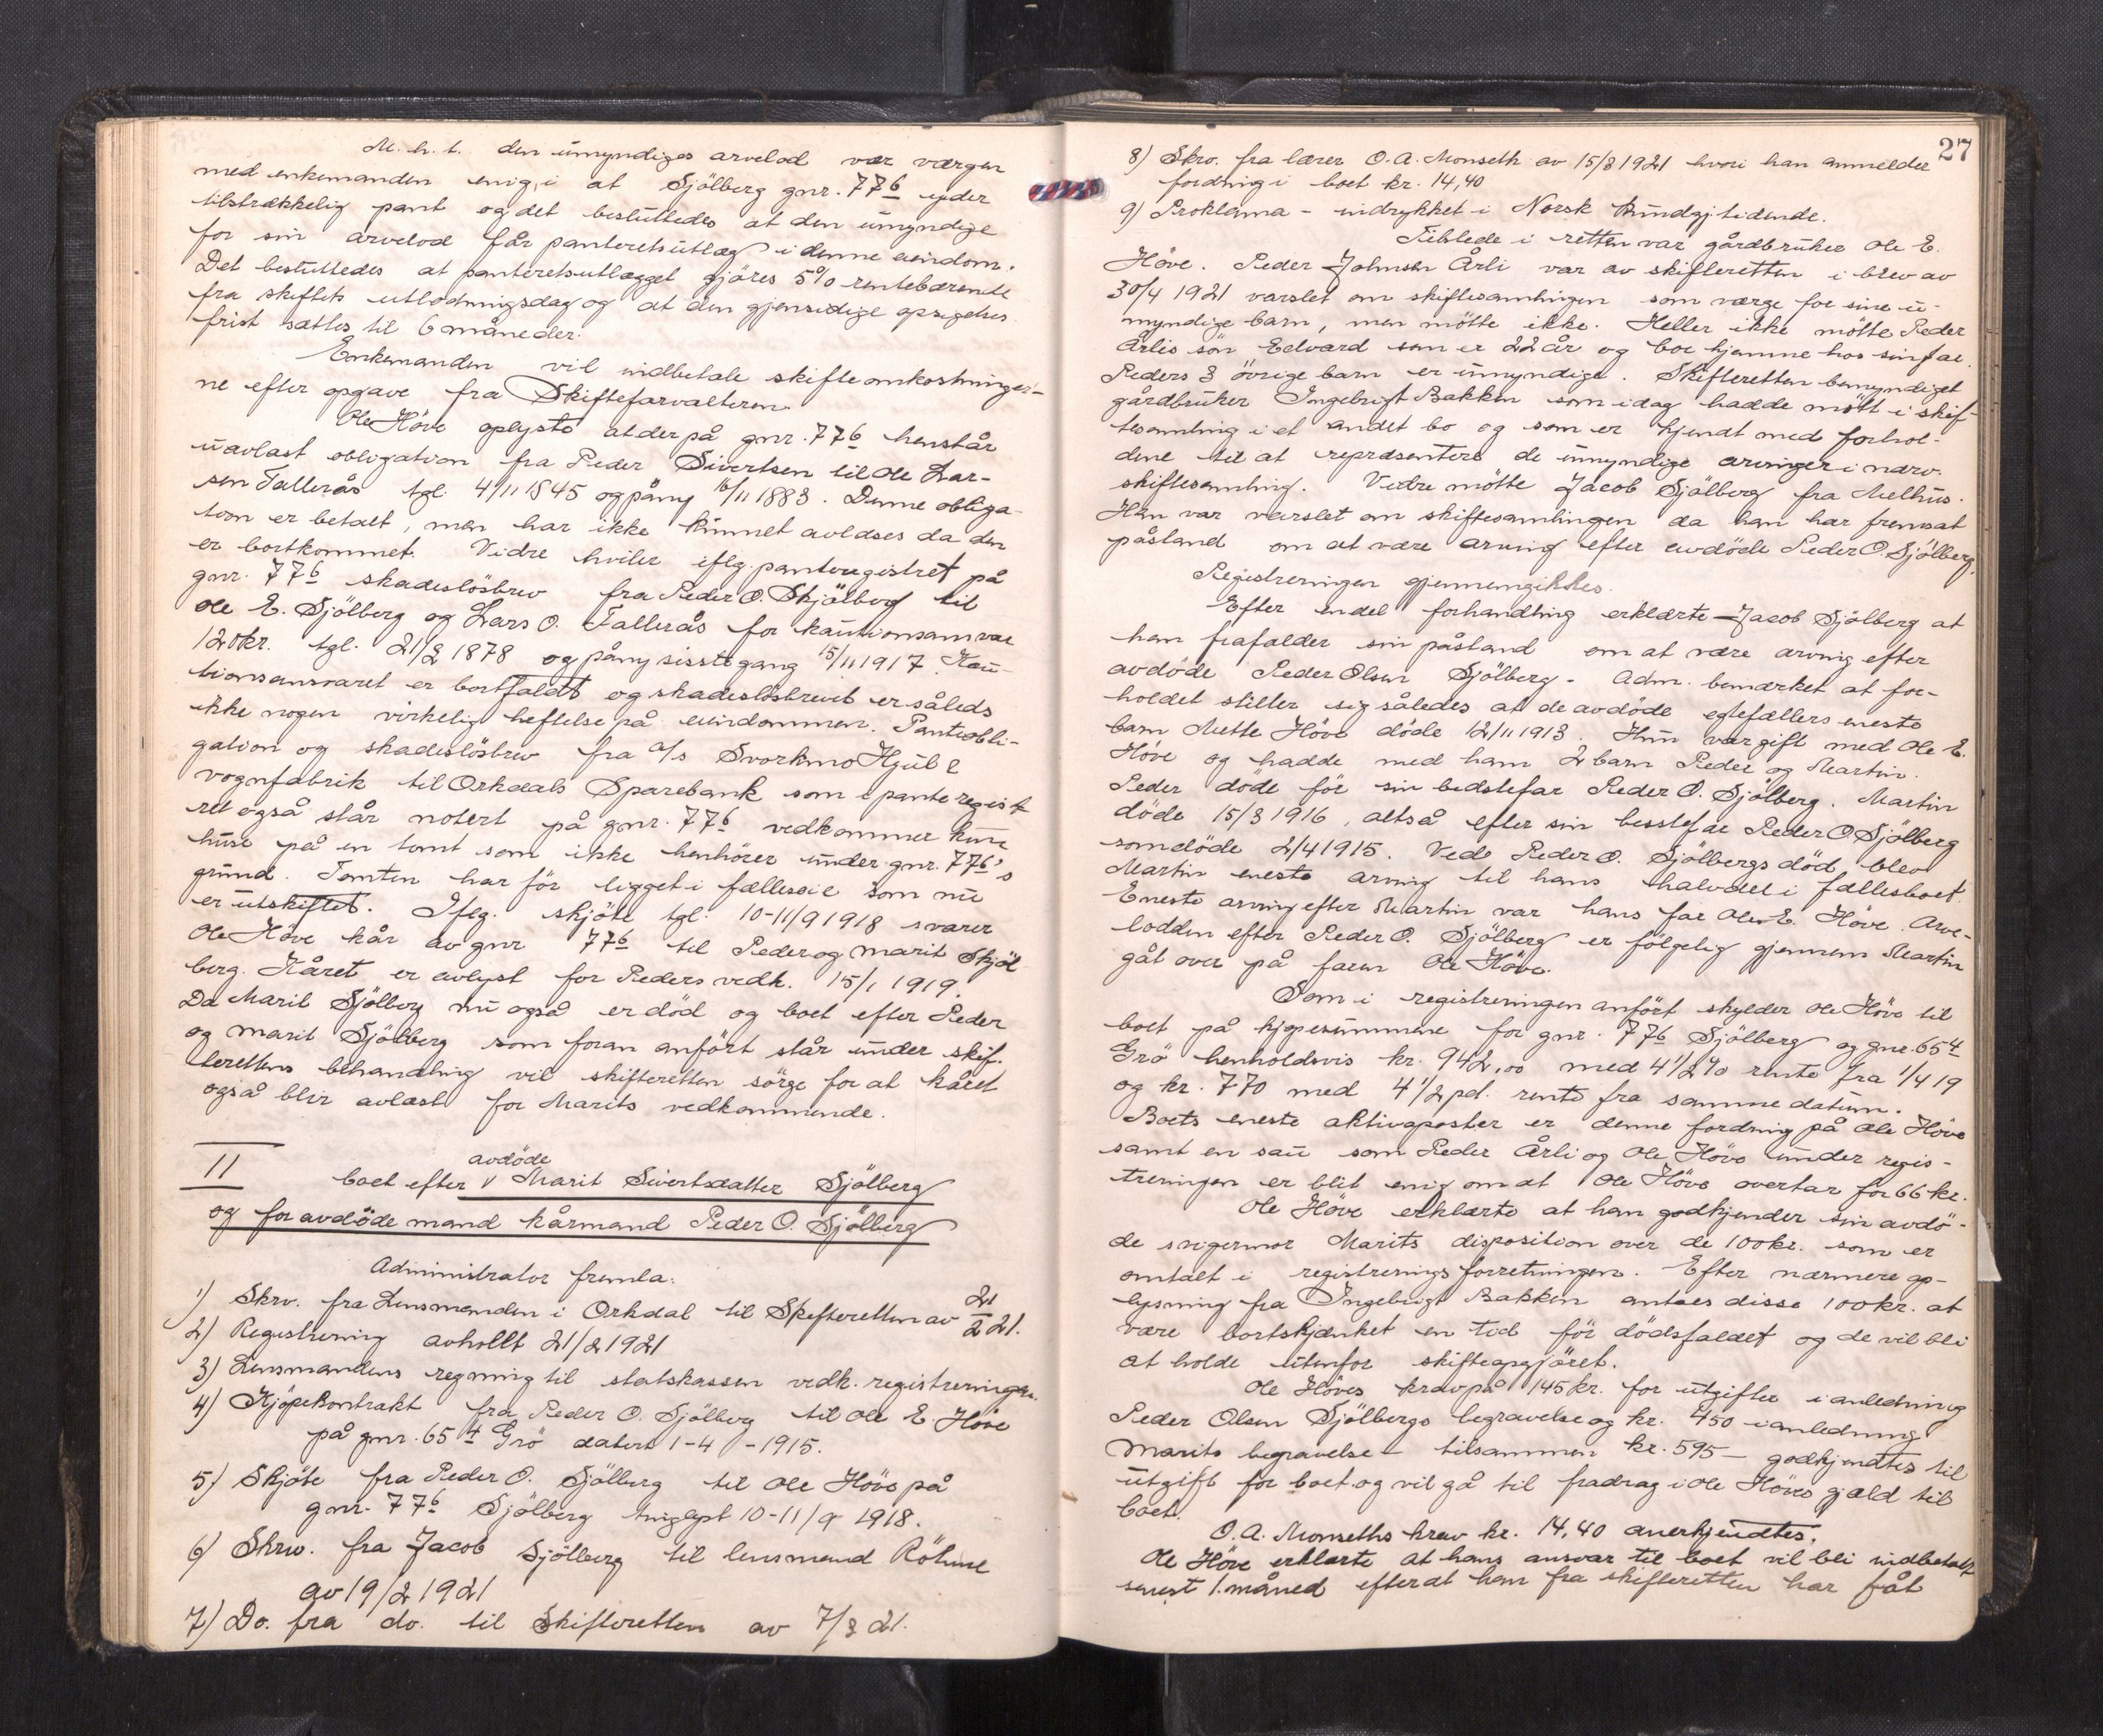 M. h. t. den umyndiges arvelod var værgen
med enkemanden enig i at Sjölberg gnr. 77 6 yder
tilstrækkelig pant og det besluttedes at den umyndige
for sin arvelod får panteretsutlæg i denne eiendom.
Det besluttedes at panteretsutlægget gjöres 5% rentebærende
fra skiftets utlodningsdag og at den gjensidige opsigelses
frist sættes til 6 måneder.
Enkemanden vil indbetale skifteomkostninger-
ne efter opgave fra Skifteforvalteren.
Ole Höve oplyste at der på gnr. 77 6 henstår
uavlast obligation fra Peder Sivertsen til Ole Lar-
sen Fallerås tgl. 4/11 1845 og påny 16/11 1883. Denne obliga-
tion er betalt, men har ikke kunnet avlæses da den
er bortkommet. Videre hviler iflg. panteregistret på
gnr. 77 6 skadeslösbrev fra Peder O. Skjölberg til
Ole E. Sjölberg og Lars O. Fallerås for kautionsansvar
120 kr. tgl. 21/2 1878 og påny sisste gang 15/11 1917. Kau-
tionsansvaret er bortfaldt og skadeslösbrevet er således
ikke nogen virkelig heftelse på eiendommen. Panteobli-
gation og skadeslösbrev fra a/s Svorkmo Hjul &
vognfabrik til Orkdals Sparebank som i panteregist-
ret også står notert på gnr. 77 6 vedkommer kun
huse på en tomt som ikke henhörer under gnr. 77 6's
grund. Tomten har för ligget i fælleseie som nu
er utskiftet. Iflg. skjöte tgl. 10-11/9 1918 svarer
Ole Höve kår av gnr 77 6 til Peder og Marit Skjöl-
berg. Kåret er avlyst for Peders vedk. 15/1 1919.
Da Marit Sjölberg nu også er död og boet efter Peder
og Marit Sjölberg som foran anfört står under skif-
terettens behandling vil skifteretten sörge for at kåret
også blir avlæst for Marits vedkommende.
11
boet efter avdöde Marit Sivertsdatter Sjölberg
og foravdöde mand kårmand Peder O. Sjölberg
Administrator fremla:
1) Skrv. fra Lensmanden i Orkdal til Skifteretten av 21/2 21.
2) Registrering avholdt 21/2 1921
3) Lensmandens regning til statskassen vedk. registreringen.
4) Kjöpekontrakt fra Peder O. Sjölberg til Ole E. Höve
på gnr. 65 4 Grö datert 1-4-1915.
5) Skjöte fra Peder O. Sjölberg til Ole Höve på
gnr. 77 6 Sjölberg tinglyst 10-11/9 1918.
6) Skrv. fra Jacob Sjölberg til lensmand Röhme
av 19/2 1921
7) Do. fra do. til Skifteretten av 7/3 21.
27
8) Skrv. fra lærer O. A. Monseth av 15/3 1921 hvori han anmelder
fordring i boet kr. 14,40
9) Proklama - indrykket i Norsk Kundgj. tidende.
Tilstede i retten var gårdbruker Ole E.
Höve. Peder Johnsen Årli var av skifteretten i brev av
30/4 1921 varslet om skiftesamlingen som værge for sine u-
myndige barn, men mötte ikke. Heller ikke mötte Peder
Årlis sön Edvard som er 22 år og bor hjemme hos sin far.
Peders 3 övrige barn er umyndige. Skifteretten bemyndiget
gårdbruker Ingebrigt Bakken som idag hadde mött i skif-
tesamling i et andet bo og som er kjendt med forhol-
dene til at repræsentere de umyndige arvinger i nærv.
skiftesamling. Videre mötte Jacob Sjölberg fra Melhus.
Han var varslet om skiftesamlingen da han har fremsat
påstand om at være arving efter avdöde Peder O. Sjölberg.
Registreringen gjennemgikkes.
Efter endel forhandling erklærte Jacob Sjölberg at
han frafalder sin påstand om at være arving efter
avdöde Peder Olsen Sjölberg. Adm. bemærket at for-
holdet stiller sig således at de avdöde egtefællers eneste
barn Mette Höve döde 12/11 1913. Hun var gift med Ole E.
Höve og hadde med ham 2 barn Peder og Martin.
Peder döde för sin bedstefar Peder O. Sjölberg. Martin
döde 15/3 1916, altså efter sin besstefar Peder O. Sjölberg
som döde 2/4 1915. Ved Peder O. Sjölbergs död blev
Martin eneste arving til hans halvdel i fællesboet.
Eneste arving efter Martin var hans far Ole E. Höve. Arve-
lodden efter Peder O. Sjölberg er fölgelig gjennem Martin
gåt over på faren Ole Höve.
Som i registreringen anfört skylder Ole Höve til
boet på kjöpesummene for gnr. 77 6 Sjölberg og gnr. 65 4
Grö henholdsvis kr. 942,00 med 4 1/2 % rente fra 1/4 19
og kr. 770 med 4 1/2 pd. rente fra samme datum.
Boets eneste aktivaposter er denne fordring på Ole Höve
samt en sau som Peder Årli og Ole Höve under regis-
treringen er blit enig om at Ole Höve overtar for 66 kr.
Ole Höve erklærte at han godkjender sin avdö-
de svigermor Marits disposition over de 100 kr. som er
omtalt i registreringsforretningen. Efter nærmere op-
lysning fra Ingebrigt Bakken antaes disse 100 kr. at
være bortskjænket en tid för dödsfaldet og de vil bli
at holde utenfor skifteopgjöret.
Ole Höves krav på 145 kr. for utgifter i anledning
Peder Olsen Sjölbergs begravelse og kr. 450 i anledning
Marits begravelse - tilsammen kr. 595 - godkjendtes til
utgift for boet og vil gå til fradrag i Ole Höves gjæld til
boet.
O. A. Monseths krav kr. 14,40 anerkjendtes.
Ole Höve erklærte at hans ansvar til boet vil bli indbetalt
senest 1. måned efterat han fra skifteretten har fåt